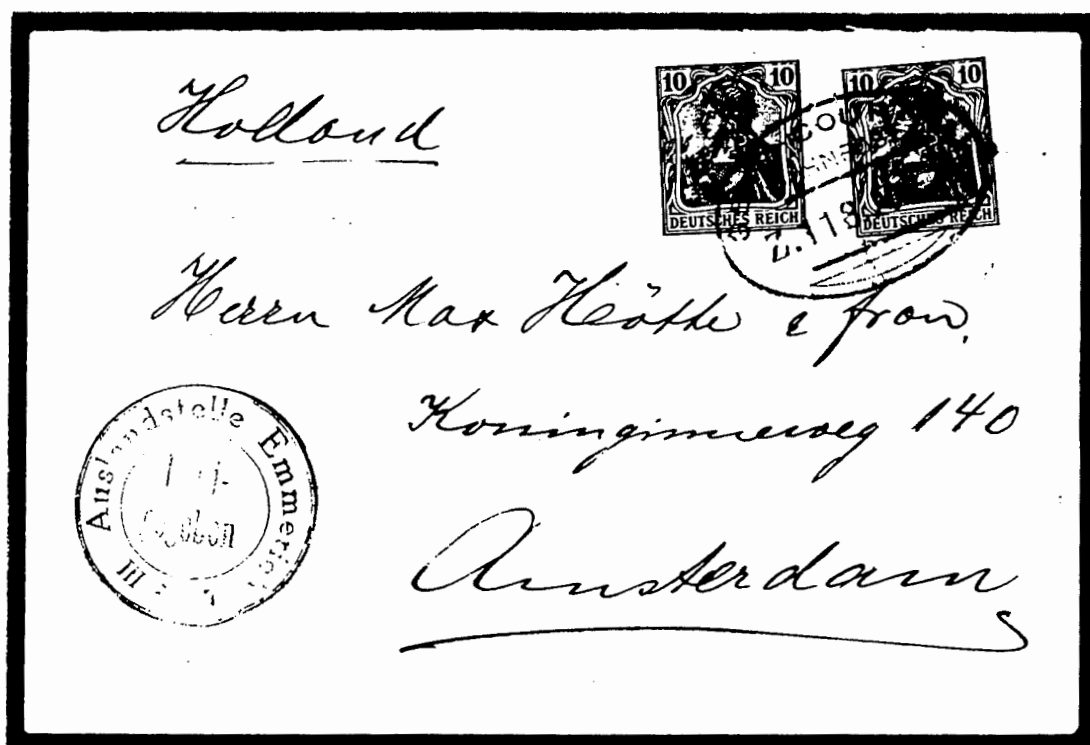 Holland
10 10
DEUTSCHES REICH
10 10
DEUTSCHES REICH
Z.118
Herrn Max Hötte & frau,
Koninginneweg 140
Amsterdam
Auslandstelle Emmerich